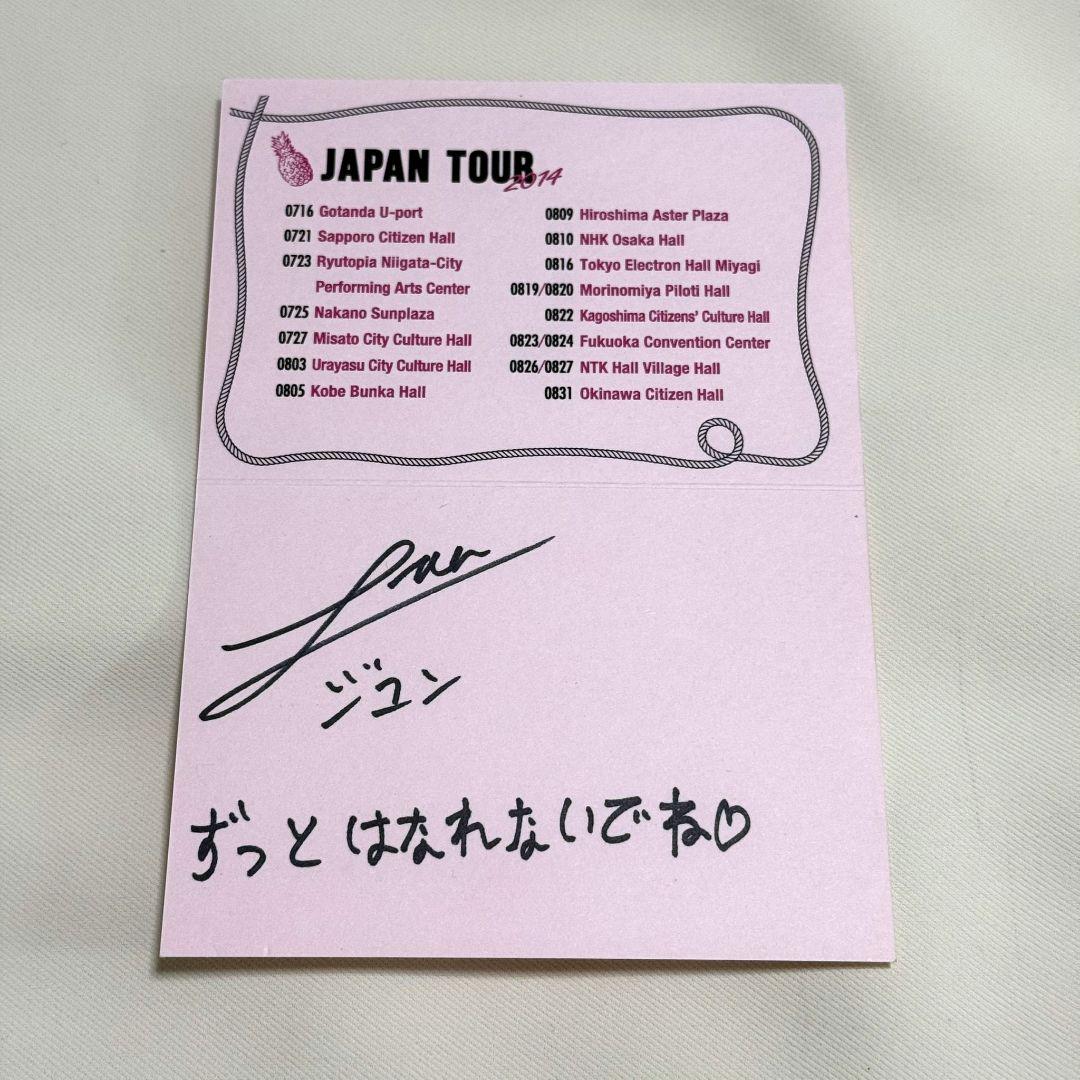 JAPAN TOUR
2014
0716 Gotanda U-port
0721 Sapporo Citizen Hall
0723 Ryutopia Niigata-City
Performing Arts Center
0725 Nakano Sunplaza
0727 Misato City Culture Hall
0803 Urayasu City Culture Hall
0805 Kobe Bunka Hall
0809 Hiroshima Aster Plaza
0810 NHK Osaka Hall
0816 Tokyo Electron Hall Miyagi
0819/0820 Morinomiya Piloti Hall
0822 Kagoshima Citizens' Culture Hall
0823/0824 Fukuoka Convention Center
0826/0827 NTK Hall Village Hall
0831 Okinawa Citizen Hall
ジュン
ずっとはなれないでね♡